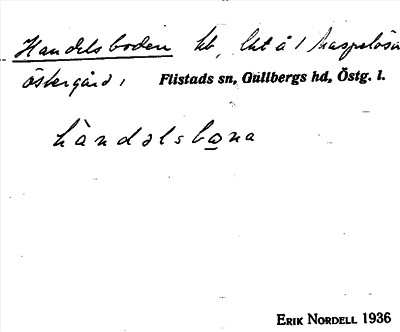 Handelsboden hb, lht å 1 Maspelösa
Östergård, Flistads sn, Gullbergs hd, Östg. l.
hàndəlsbωna
ERIK NORDELL 1936